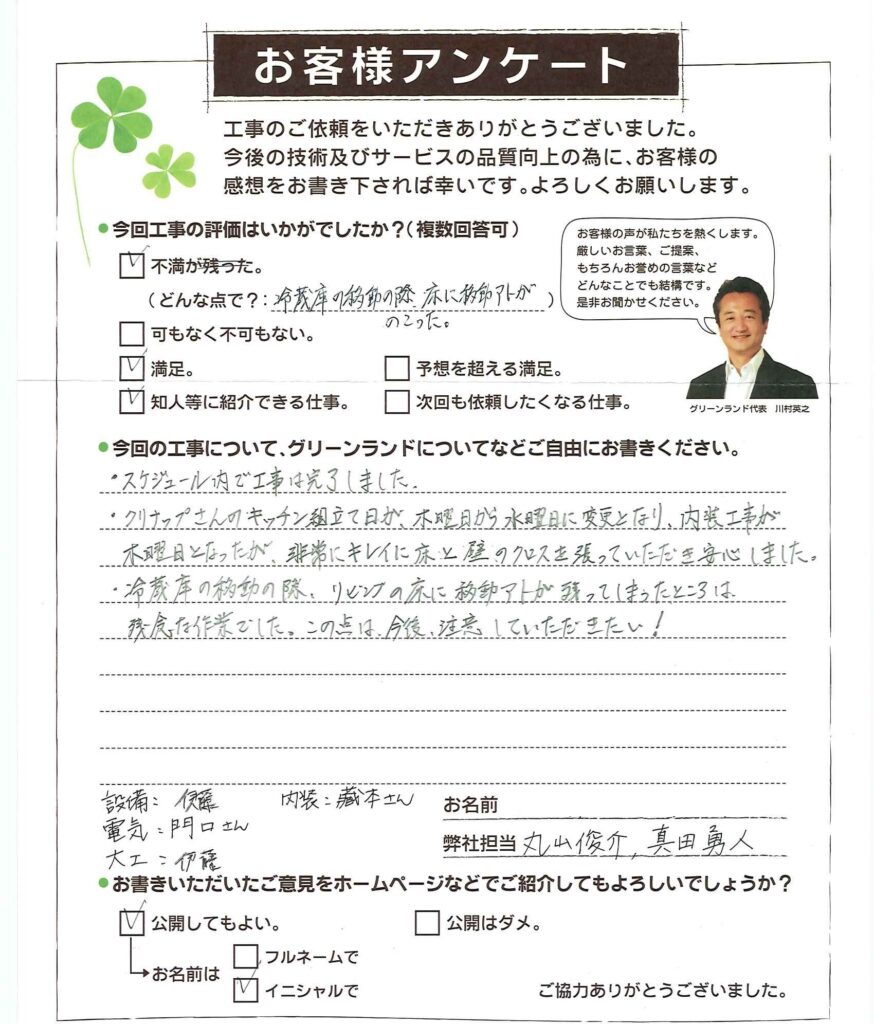 お客様アンケート
工事のご依頼をいただきありがとうございました。
今後の技術及びサービスの品質向上の為に、お客様の
感想をお書き下されば幸いです。よろしくお願いします。
●今回工事の評価はいかがでしたか？（複数回答可）
不満が残った。
（どんな点で？：冷蔵庫の移動の際、床に移動アトが）
のこった。
可もなく不可もない。
満足。
予想を超える満足。
知人等に紹介できる仕事。
次回も依頼したくなる仕事。
お客様の声が私たちを熱くします。
厳しいお言葉、ご提案、
もちろんお誉めの言葉など
どんなことでも結構です。
是非お聞かせください。
グリーンランド代表　川村英之
●今回の工事について、グリーンランドについてなどご自由にお書きください。
・スケジュール内で工事は完了しました。
・クリナップさんのキッチン組立て日が、木曜日から水曜日に変更となり、内装工事が
木曜日となったが、非常にキレイに床と壁のクロスを張っていただき安心しました。
・冷蔵庫の移動の際、リビングの床に移動アトが残ってしまったところは
残念な作業でした。この点は、今後、注意していただきたい！
設備：伊藤　内装：蔵本さん
電気：門口さん
大工：伊藤
お名前
弊社担当 丸山俊介, 真田勇人
●お書きいただいたご意見をホームページなどでご紹介してもよろしいでしょうか？
公開してもよい。
公開はダメ。
お名前は
フルネームで
イニシャルで
ご協力ありがとうございました。